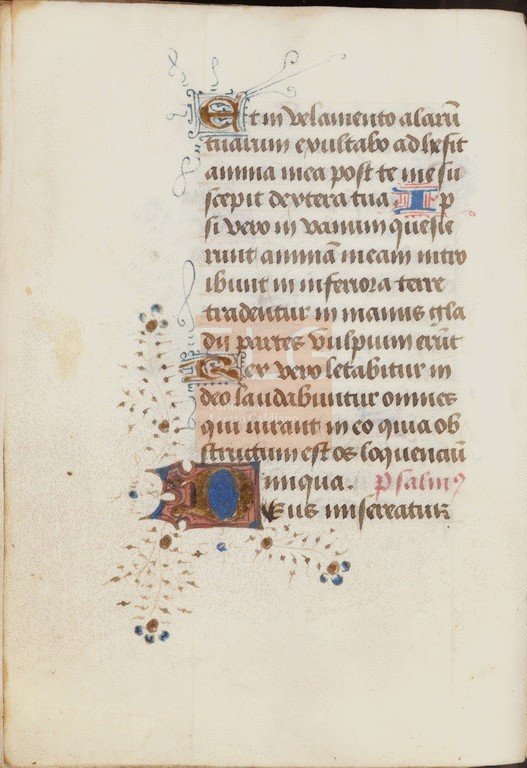 Et in velamento alarū
tuarum exultabo adhesit
anima mea post te me su
scepit dextera tua Ip
si vero in vanum quesie
runt animā meam intro
ibunt in inferiora terre
tradentur in manus gla
dii partes vulpium erūt
Rex vero letabitur in
deo laudabuntur omnes
qui iurant in eo quia ob
structum est os loquenciū
iniqua. psalmꝰ
DEus misereatur